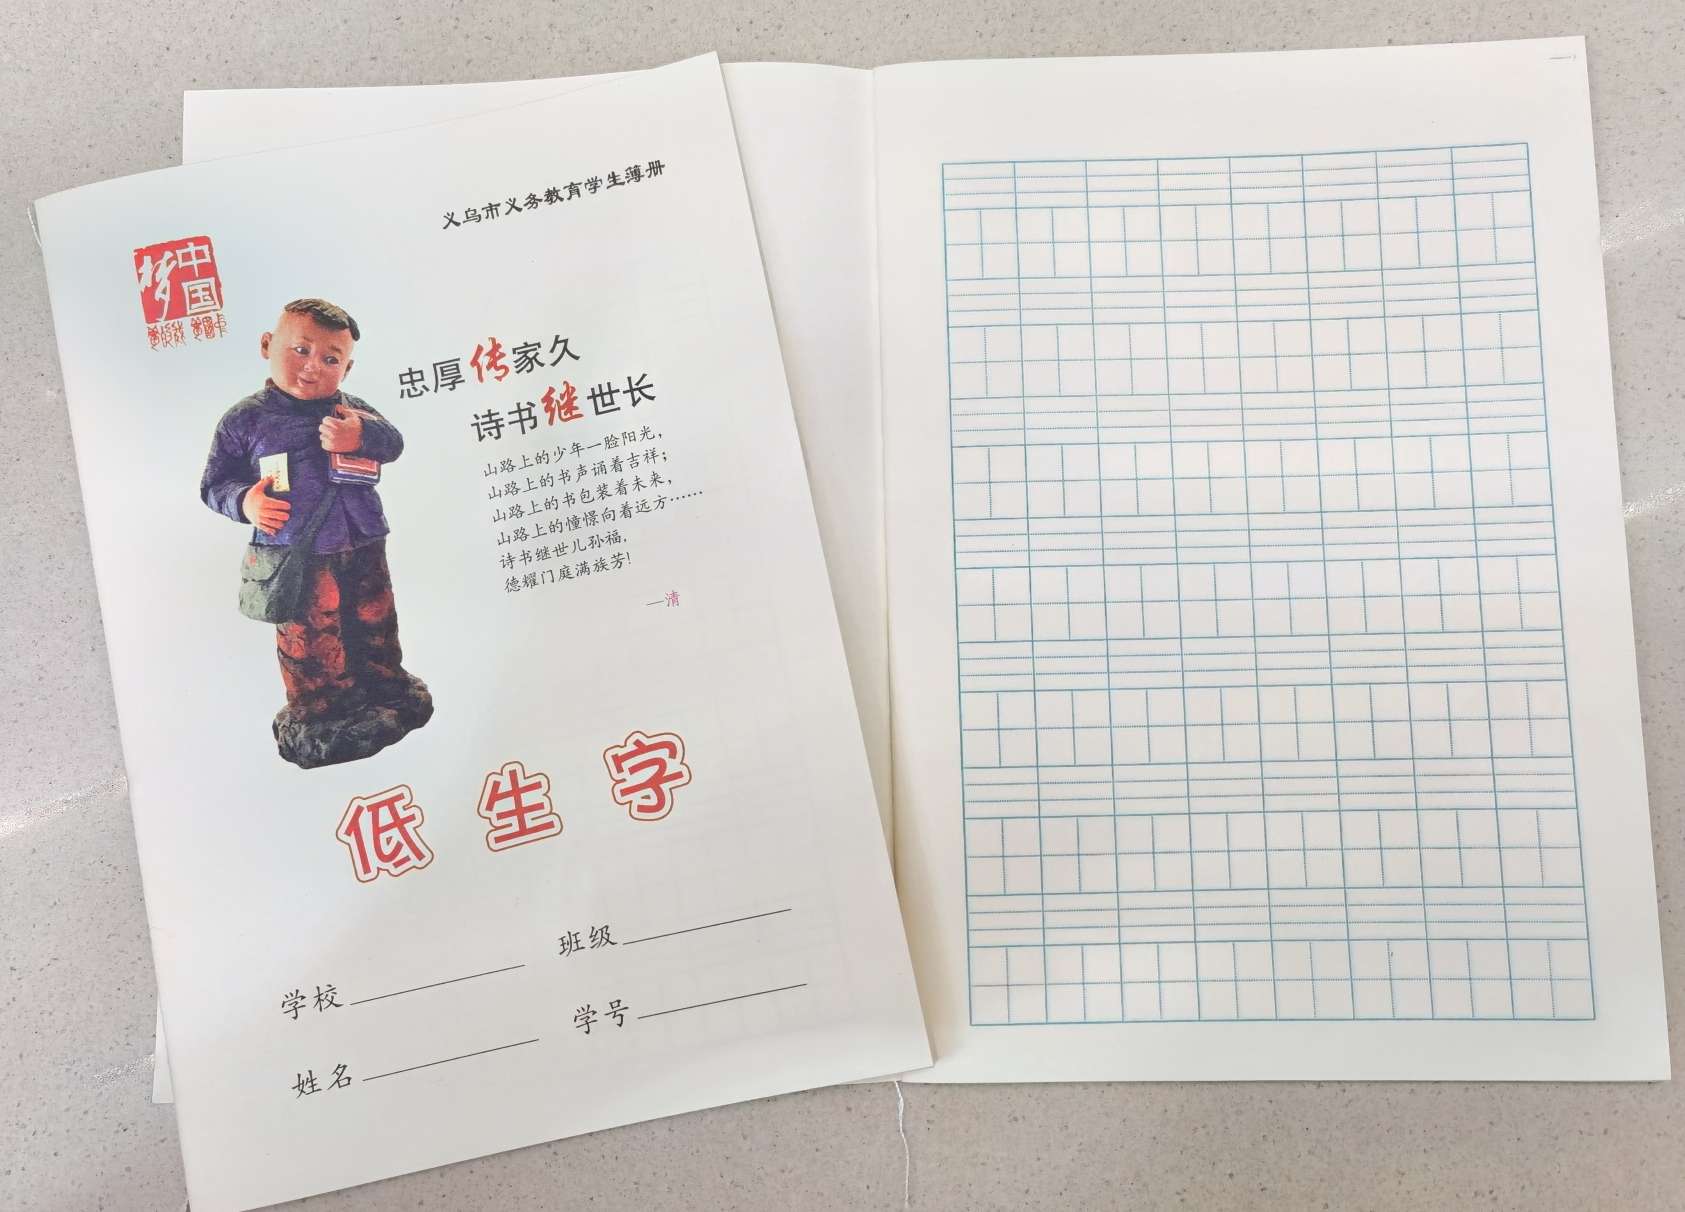 义乌市义务教育学生薄册
中国梦
忠厚传家久
诗书继世长
山路上的少年一脸阳光，
山路上的书声诵着吉祥；
山路上的书包装着未来，
山路上的憧憬向着远方……
诗书继世儿孙福，
德耀门庭满族芳！
—清
低生字
班级
学校
学号
姓名